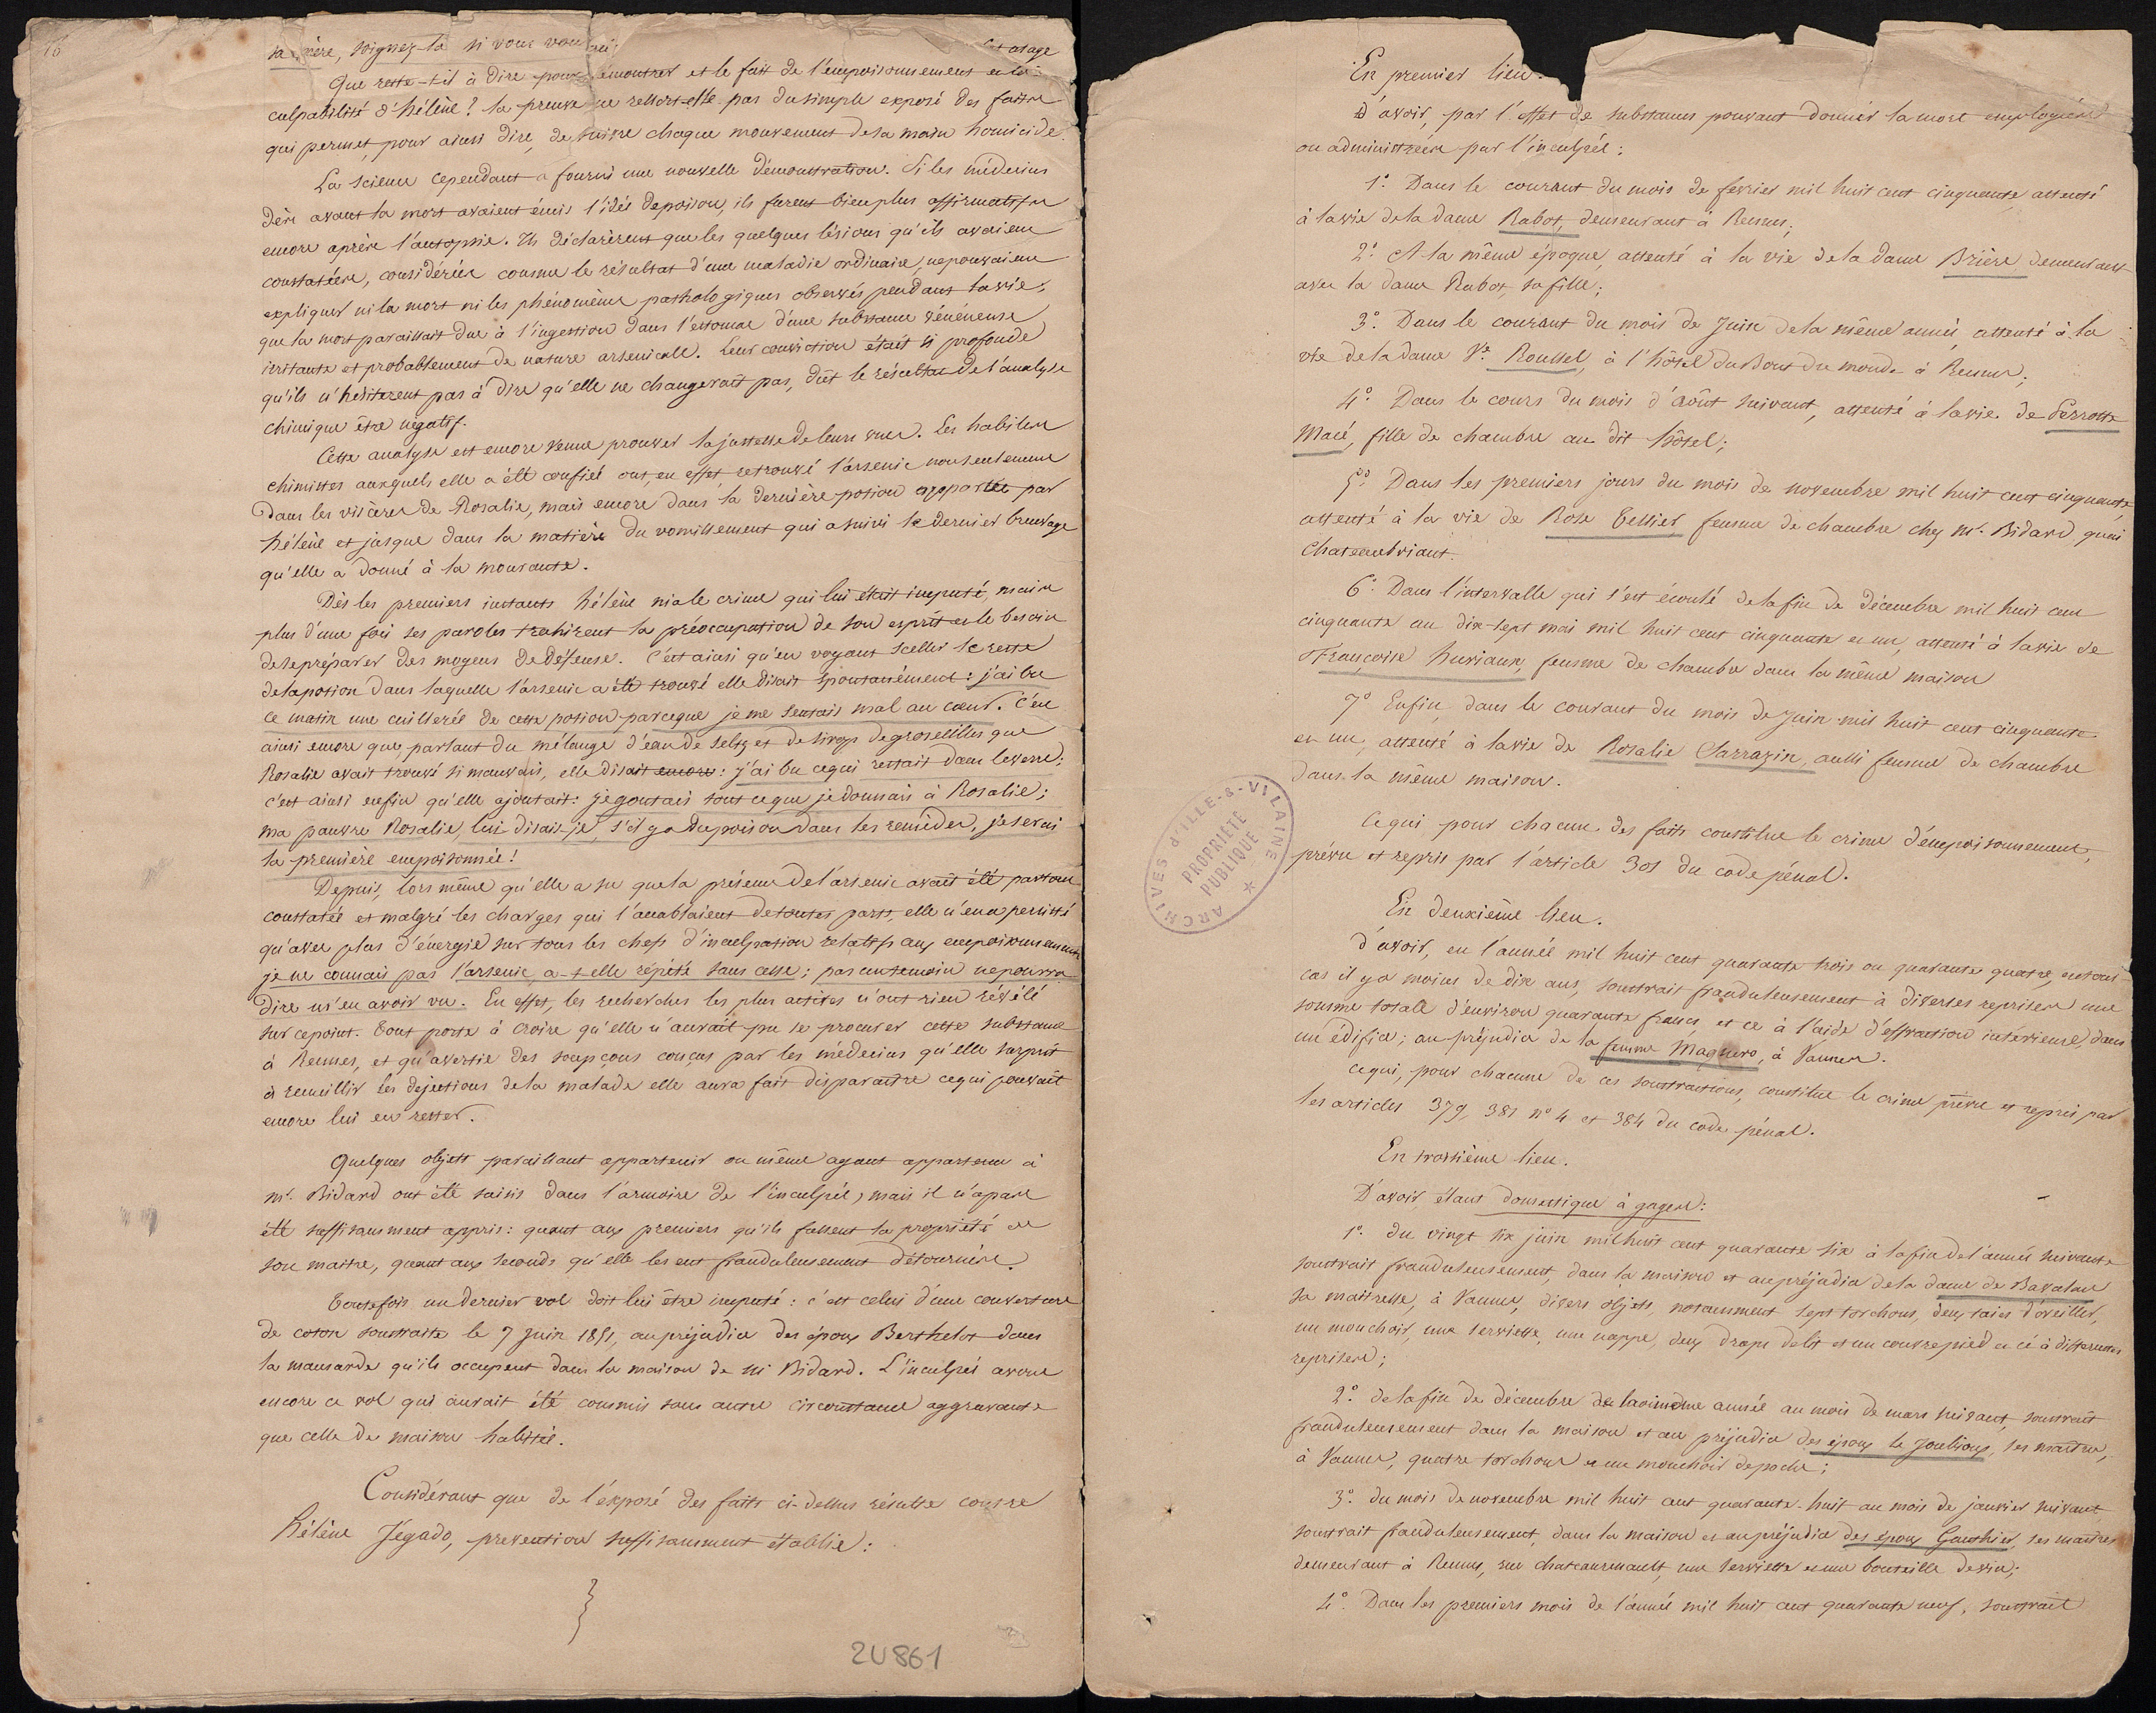 16
sa mère, soignez-la si vous voulez
cet usage
Que reste-t-il à dire pour démontrer et le fait de l'empoisonnement et la
culpabilité d'hélène ? la preuve ne ressort-elle pas du simple exposé des faits
qui permet, pour ainsi dire, de suivre chaque mouvement de sa main homicide.
La science cependant a fourni une nouvelle démonstration. Si les médecins
dès avant la mort avaient émis l'idée de poison, ils furent bien plus affirmatifs
encore après l'autopsie. Ils déclarèrent que les quelques lésions qu'ils avaient
constatées, considérées comme le résultat d'une maladie ordinaire, ne pouvaient
expliquer ni la mort ni les phénomènes pathologiques observés pendant la vie;
que la mort paraissait due à l'ingestion dans l'estomac d'une substance vénéneuse
irritante et probablement de nature arsenicale. Leur conviction était si profonde
qu'ils n'hésitèrent pas à dire qu'elle ne changerait pas, dût le résultat de l'analyse
chimique être négatif.
Cette analyse est encore venue prouver la justesse de leurs vues. Les habiles
chimistes auxquels elle a été confiée ont, en effet, retrouvé l'arsenic non seulement
dans les viscères de Rosalie, mais encore dans la dernière potion apportée par
hélène et jusque dans la matière du vomissement qui a suivi le dernier breuvage
qu'elle a donné à la mourante.
Dès les premiers instants hélène nia le crime qui lui était imputé, mais
plus d'une fois ses paroles trahirent la préoccupation de son esprit et le besoin
de se préparer des moyens de défense. C'est ainsi qu'en voyant sceller le reste
de la potion dans laquelle l'arsenic a été trouvé elle disait spontanément : j'ai bu
ce matin une cuillerée de cette potion parceque je me sentais mal au cœur. C'est
ainsi encore que, parlant du mélange d'eau de seltz et de sirop de groseilles que
Rosalie avait trouvé si mauvais, elle disait encore : j'ai bu ce qui restait dans le verre;
c'est ainsi enfin qu'elle ajoutait : je goutais tout ce que je donnais à Rosalie;
ma pauvre Rosalie, lui disais-je, s'il y a du poison dans tes remèdes, je serai
la première empoisonnée !
Depuis, lors même qu'elle a su que la présence de l'arsenic avait été partout
constatée et malgré les charges qui l'accablaient de toutes parts, elle n'en a persisté
qu'avec plus d'énergie sur tous les chefs d'inculpation relatifs aux empoisonnements
je ne connais pas l'arsenic, a-t-elle répété sans cesse; pas un témoin ne pourra
dire m'en avoir vu. En effet, les recherches les plus actives n'ont rien révélé
sur ce point. Tout porte à croire qu'elle n'aurait pu se procurer cette substance
à Rennes, et qu'avertie des soupçons conçus par les médecins qu'elle surprit
à recueillir les déjections de la malade elle aura fait disparaître ce qui pouvait
encore lui en rester.
Quelques objets paraissant appartenir ou même ayant appartenu à
Mr. Bidard ont été saisis dans l'armoire de l'inculpée, mais il n'a pas
été suffisamment appris : quant aux premiers qu'ils fussent la propriété de
son maitre, quant aux seconds qu'elle les eut frauduleusement détournés.
Toutefois un dernier vol doit lui être imputé : c'est celui d'une couverture
de coton soustraite le 7 Juin 1851, au préjudice des époux Berthelot dans
la mansarde qu'ils occupent dans la maison de M Bidard. L'inculpée avoue
encore ce vol qui aurait été commis sans autre circonstance aggravante
que celle de maison habitée.
Considérant que de l'exposé des faits ci-dessus résulte contre
Hélène Jégado, prévention suffisamment établie :
2U861
En premier lieu.
D'avoir, par l'effet de substances pouvant donner la mort employées
ou administrées par l'inculpée :
1°. Dans le courant du mois de février mil huit cent cinquante, attenté
à la vie de la dame Rabot, demeurant à Rennes;
2° A la même époque, attenté à la vie de la dame Brière demeurant
avec la dame Rabot, sa fille;
3°. Dans le courant du mois de Juin de la même année, attenté à la
vie de la dame Ve. Roussel, à l'hôtel du Bout du monde à Rennes;
4° Dans le cours du mois d'août suivant, attenté à la vie de Perrotte
Macé, fille de chambre au dit hôtel;
5° Dans les premiers jours du mois de novembre mil huit cent cinquante,
attenté à la vie de Rose Tessier femme de chambre chez Mr. Bidard, quai
Chateaubriant.
6° Dans l'intervalle qui s'est écoulé de la fin de décembre mil huit cent
cinquante au dix-sept mai mil huit cent cinquante et un, attenté à la vie de
Françoise huriaux, femme de chambre dans la même maison
7° Enfin, dans le courant du mois de Juin mil huit cent cinquante
et un, attenté à la vie de Rosalie Sarrazin, aussi femme de chambre
dans la même maison.
Ce qui pour chacun des faits constitue le crime d'empoisonnement,
prévu et repris par l'article 301 du code pénal.
ARCHIVES d'ILLE-&-VILAINE
PROPRIÉTÉ
PUBLIQUE
En deuxième lieu.
d'avoir, en l'année mil huit cent quarante trois ou quarante quatre, en tout
cas il y a moins de dix ans, soustrait frauduleusement à diverses reprises une
somme totale d'environ quarante francs, et ce à l'aide d'effraction intérieure, dans
un édifice; au préjudice de la femme Maguero, à Vannes.
ce qui, pour chacune de ces soustractions, constitue le crime prévu et repris par
les articles 379, 381 n° 4 et 384 du code pénal.
En troisième lieu.
D'avoir, étant domestique à gages :
1°. du vingt six juin mil huit cent quarante six à la fin de l'année suivante
soustrait frauduleusement, dans la maison et au préjudice de la dame de Bavalan
sa maitresse, à Vannes, divers objets, notamment sept torchons, deux taies d'oreiller,
un mouchoir, une serviette, une nappe, deux draps de lit et un couvrepied et ce à différentes
reprises;
2°. de la fin de décembre de la même année au mois de mars suivant, soustrait
frauduleusement dans la maison et au préjudice des époux Le Joulioux, ses maitres,
à Vannes, quatre torchons et un mouchoir de poche;
3°. du mois de novembre mil huit cent quarante-huit au mois de janvier suivant
soustrait frauduleusement, dans la maison et au préjudice des époux Gauthier, ses maitres
demeurant à Rennes, rue chateaurenault, une serviette et une bouteille de vin;
4°. Dans les premiers mois de l'année mil huit cent quarante neuf, soustrait